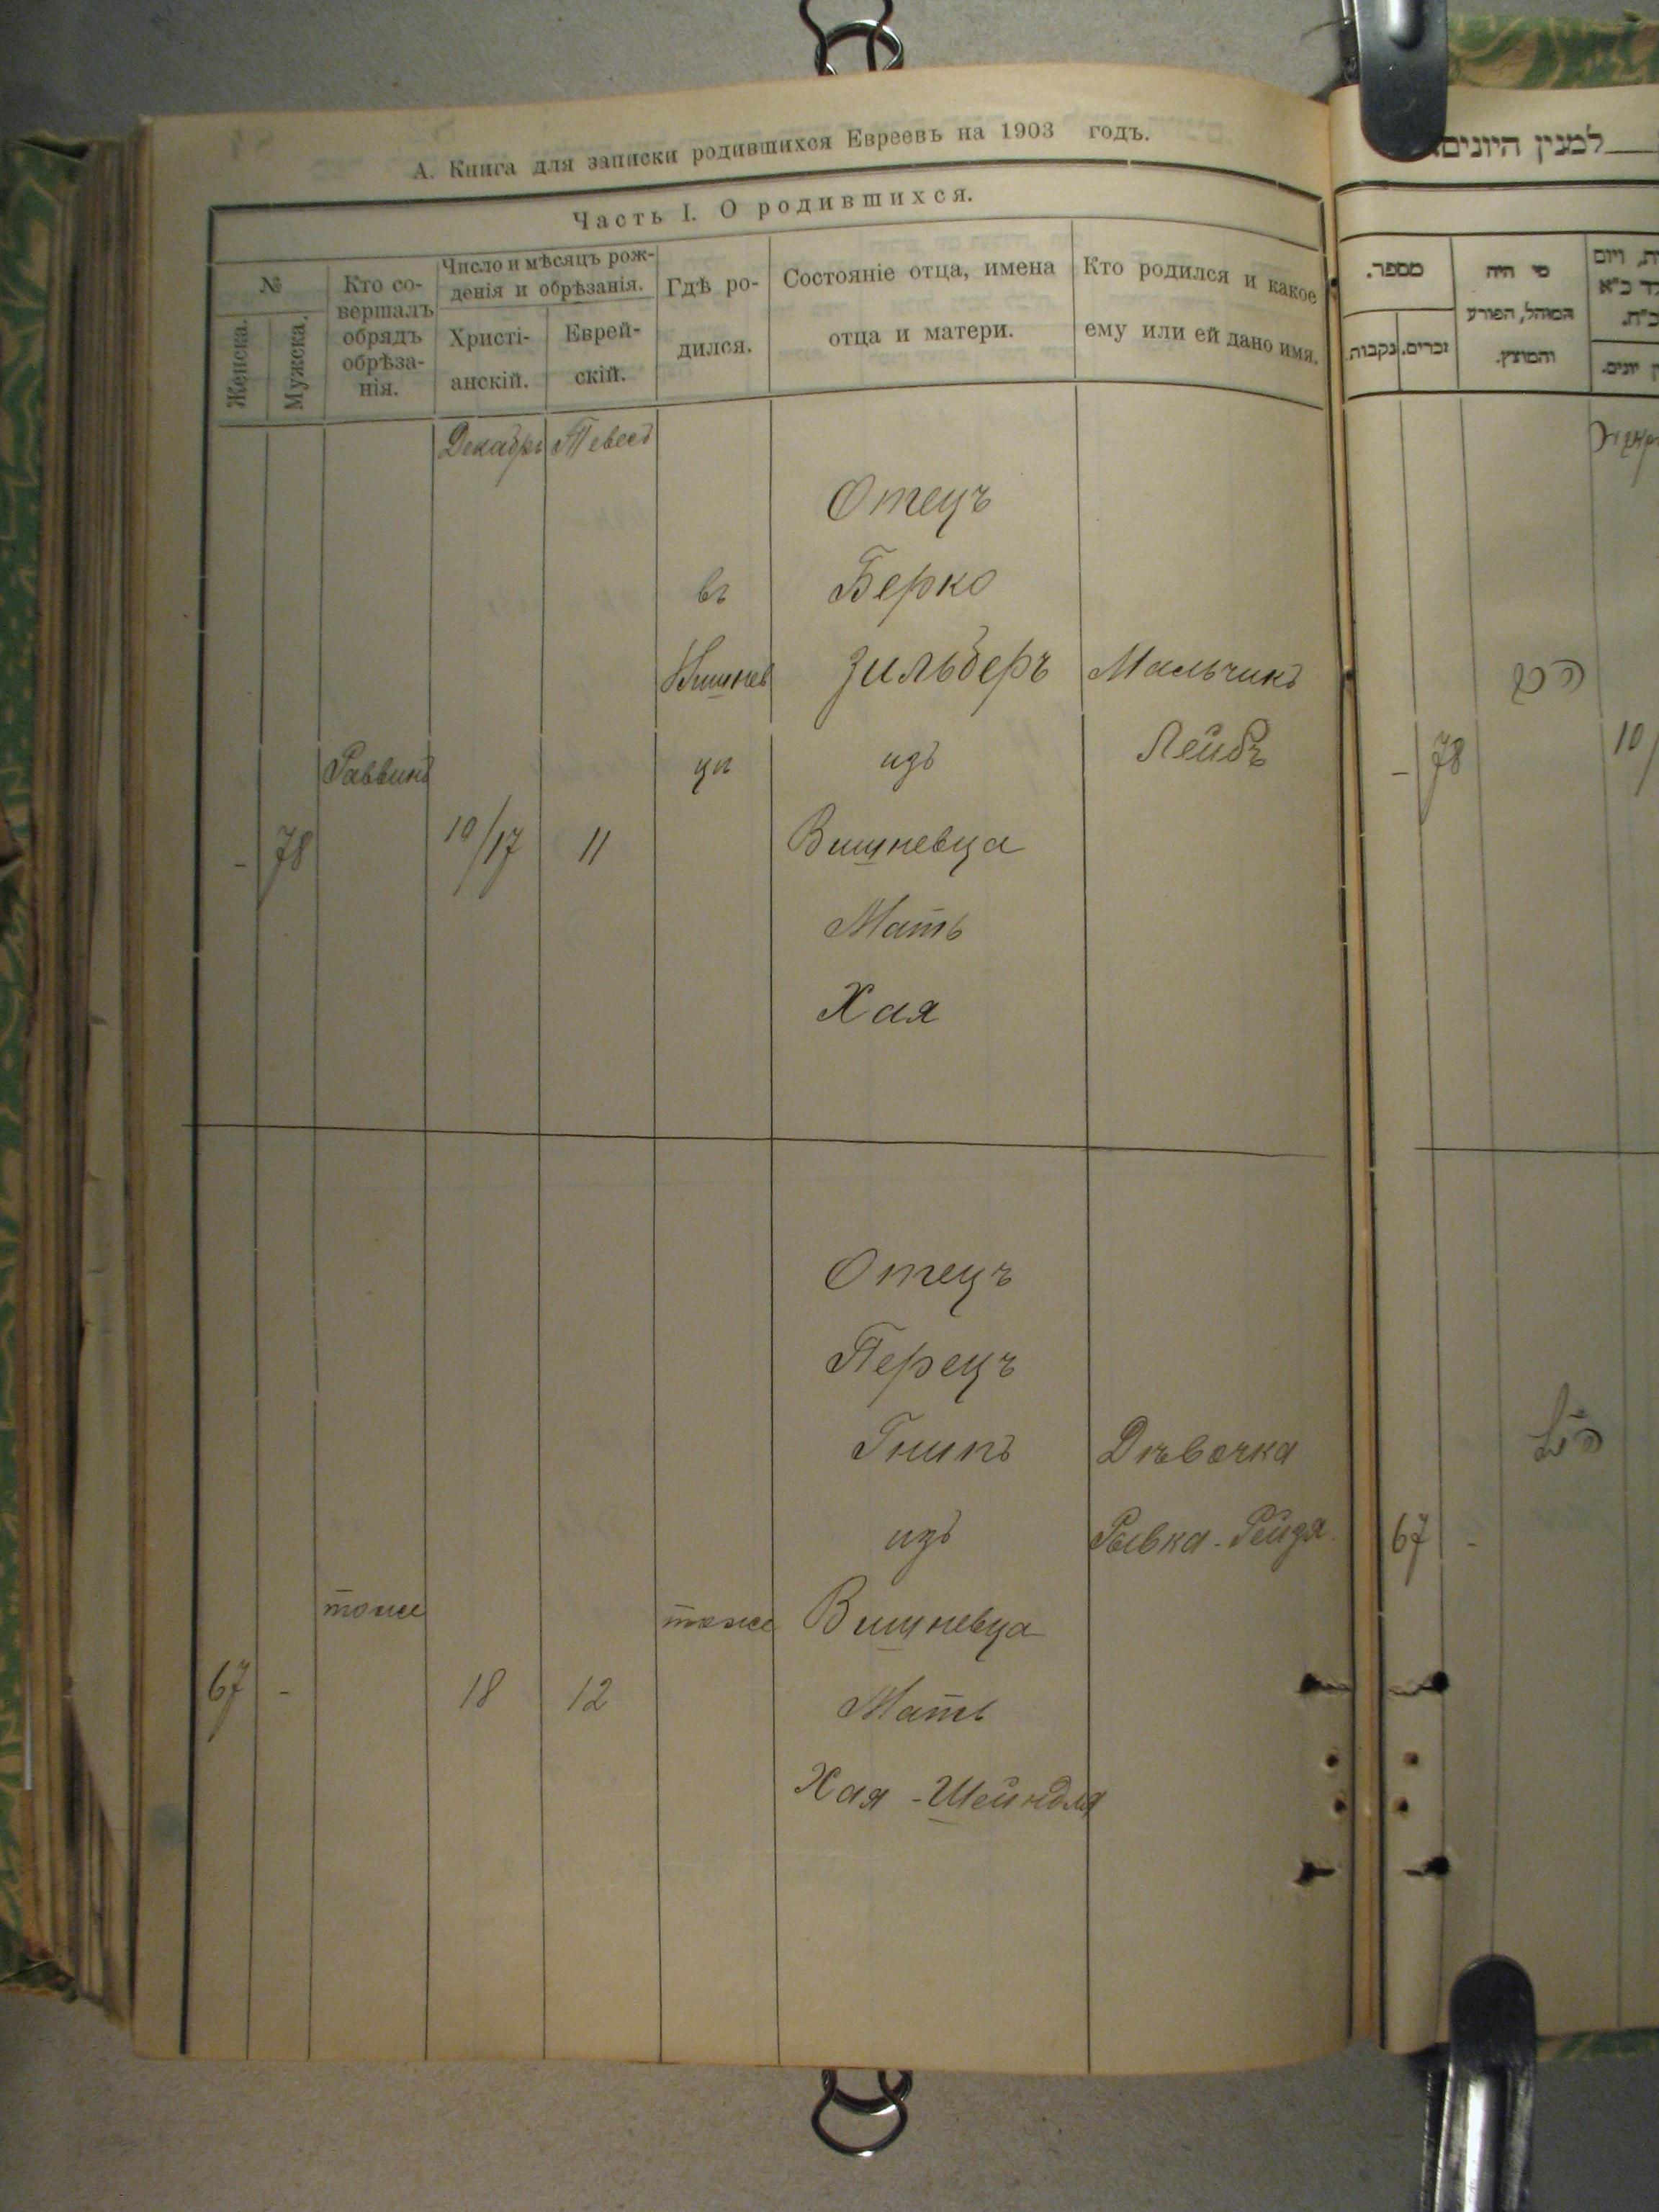 А. Книга для записки родившихся Евреевъ на 1903 годъ.
Часть I. О родившихся.
№
Женска.
Мужска.
Кто со-
вершалъ
обрядъ
обрѣза-
нія.
Число и мѣсяцъ рож-
денія и обрѣзанія.
Христі-
анскій.
Еврей-
скій.
Гдѣ ро-
дился.
Состояніе отца, имена
отца и матери.
Кто родился и какое
ему или ей дано имя.
Декабрь Тевесъ
Отецъ
въ Берко
Вишнев Зильберъ Мальчикъ
Раввинъ цѣ изъ Лейбъ
- 78 10/17 11 Вишневца
Мать
Хая
Отецъ
Перецъ
Гнипъ Дѣвочка
изъ Рывка-Рейзя
тоже тоже Вишневца
67 - 18 12 Мать
Хая-Шейндля
למנין היונים
מספר.
זכרים.
נקבות.
מי היה
המוהל, הפורע
והמוצץ.
- 78 10/
67 -